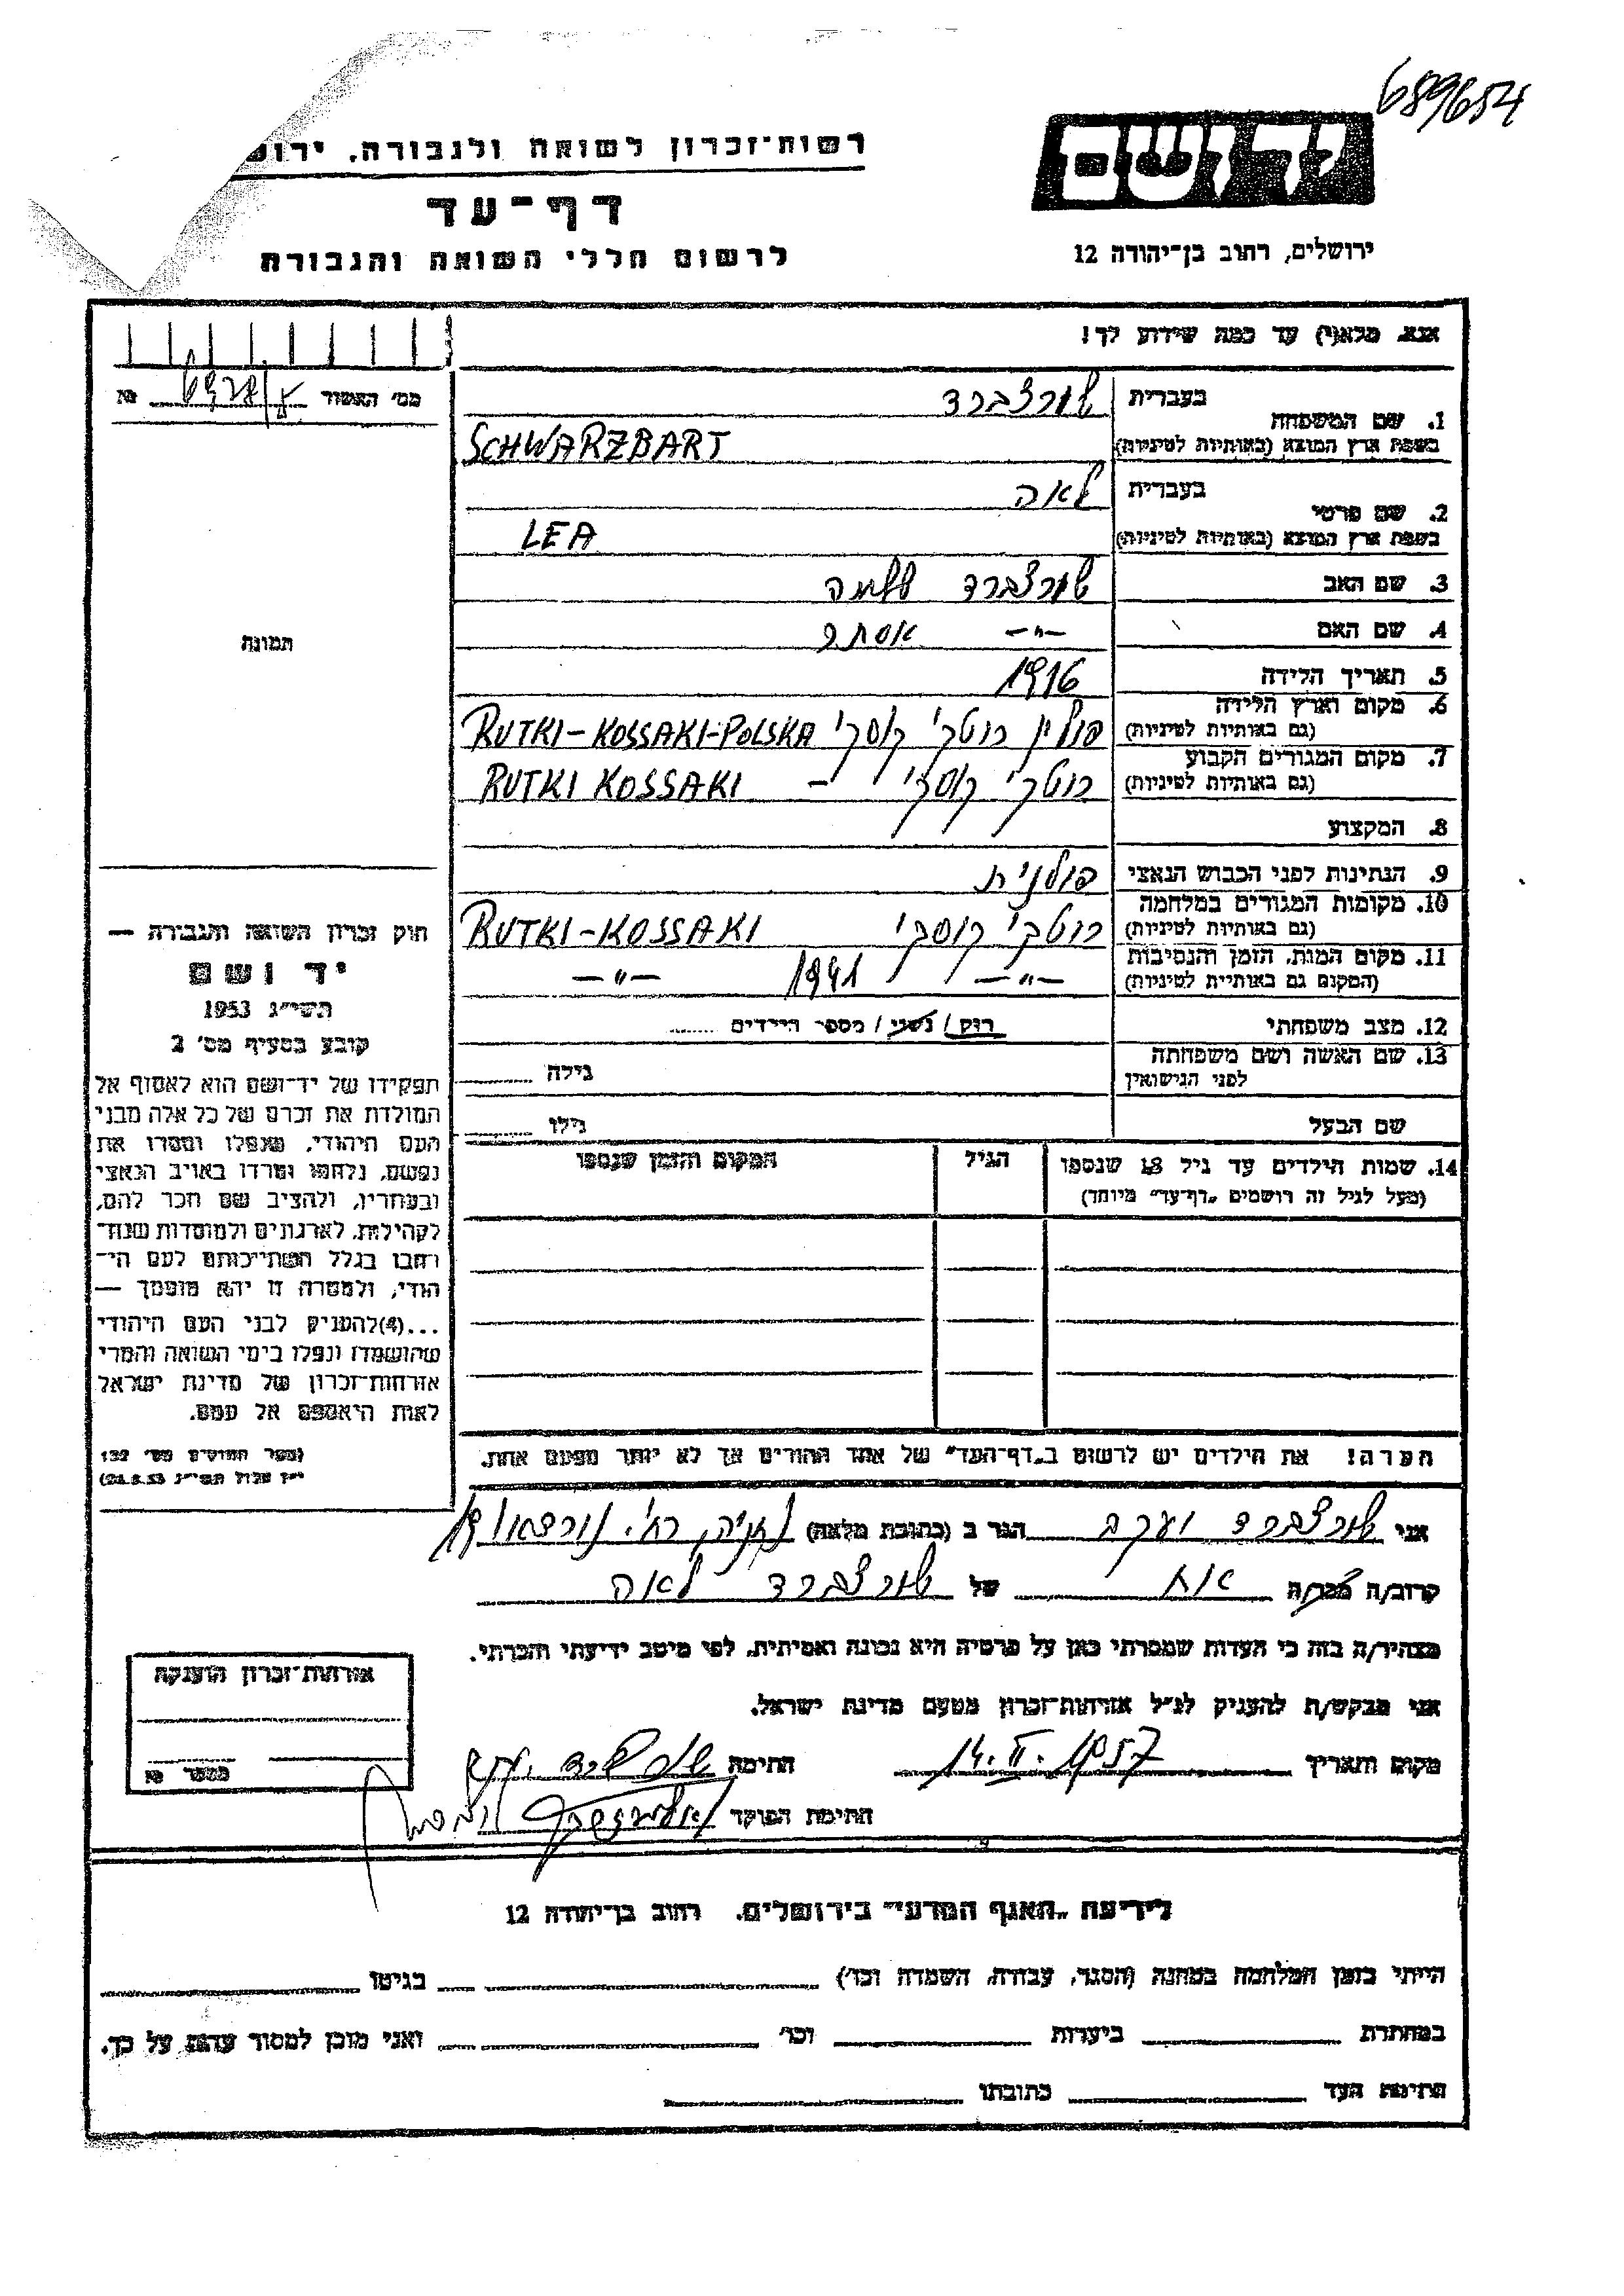 689654
רשות־זכרון לשואה ולגבורה, ירוש
דף־עד
לרשום חללי השואה והגבורה
יד ושם
ירושלים, רחוב בן־יהודה 12
אנא, מלא(י) עד כמה שידוע לך!
מס' האשור №
1. שם המשפחה
בעברית שורצברד
בשפת ארץ המוצא (באותיות לטיניות) SCHWARZBART
2. שם פרטי
בעברית לאה
בשפת ארץ המוצא (באותיות לטיניות) LEA
3. שם האב שורצברד שלמה
4. שם האם –״– אסתר
5. תאריך הלידה 1916
6. מקום וארץ הלידה
(גם באותיות לטיניות) פולין רוטקי קוסקי RUTKI-KOSSAKI-POLSKA
7. מקום המגורים הקבוע
(גם באותיות לטיניות) רוטקי קוסקי – RUTKI KOSSAKI
8. המקצוע
9. הנתינות לפני הכבוש הנאצי פולנית
10. מקומות המגורים במלחמה
(גם באותיות לטיניות) רוטקי קוסקי RUTKI-KOSSAKI
11. מקום המות, הזמן והנסיבות
(המקום גם באותיות לטיניות) –״– 1941 –״–
12. מצב משפחתי רוק / נשוי / מספר הילדים
13. שם האשה ושם משפחתה
לפני הנישואין גילה
שם הבעל גילו
14. שמות הילדים עד גיל 18 שנספו הגיל המקום והזמן שנספו
(מעל לגיל זה רושמים „דף־עד״ מיוחד)
הערה! את הילדים יש לרשום ב„דף־העד״ של אחד ההורים אך לא יותר מפעם אחת.
תמונה
חוק זכרון השואה והגבורה —
יד ושם
תשי״ג 1953
קובע בסעיף מס' 2
תפקידו של יד־ושם הוא לאסוף אל
המולדת את זכרם של כל אלה מבני
העם היהודי, שנפלו ומסרו את
נפשם, נלחמו ומרדו באויב הנאצי
ובעוזריו, ולהציב שם וזכר להם,
לקהילות, לארגונים ולמוסדות שנח־
רבו בגלל השתייכותם לעם הי־
הודי, ולמטרה זו יהא מוסמך —
...(4)להעניק לבני העם היהודי
שהושמדו ונפלו בימי השואה והמרי
אזרחות־זכרון של מדינת ישראל
לאות היאספם אל עמם.
(ספר החוקים מס' 132
י״ז אלול תשי״ג 28.8.53)
אני שורצברד יעקב הגר ב (כתובת מלאה) נתניה, רח'. נורדאו 19
קרוב/ה מכר/ה אח של שורצברד לאה
מצהיר/ה בזה כי העדות שמסרתי כאן על פרטיה היא נכונה ואמיתית, לפי מיטב ידיעתי והכרתי.
אני מבקש/ת להעניק לנ״ל אזרחות־זכרון מטעם מדינת ישראל.
מקום ותאריך 14.II.1957 חתימה
חתימת הפוקד
אזרחות־זכרון הוענקה
במספר №
לידיעת „האגף המדעי״ בירושלים, רחוב בן־יהודה 12
הייתי בזמן המלחמה במחנה (הסגר, עבודה, השמדה וכו') בגיטו
במחתרת ביערות וכו' ואני מוכן למסור עדות על כך.
חתימת העד כתובתו